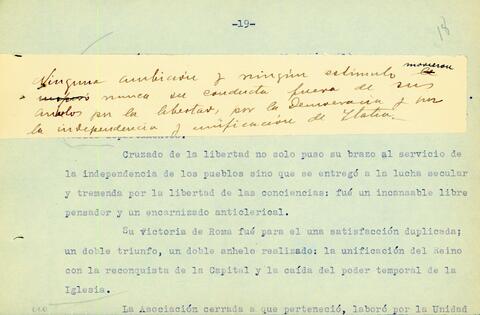 -19-
18
movieron
Ninguna ambición y ningún estímulo
nunca su conducta fuera de sus
anhelos por la libertad, por la Democracia y por
la independencia y unificación de Italia.
Cruzado de la libertad no solo puso su brazo al servicio
de la independencia de los pueblos sino que se entregó a la lucha secular
y tremenda por la libertad de las conciencias: fué un incansable libre
pensador y un encarnizado anticlerical.
Su victoria de Roma fué para el una satisfacción duplicada;
un doble triunfo, un doble anhelo realizado: la unificación del Reino
con la reconquista de la Capital y la caída del poder temporal de la
Iglesia.
La Asociación cerrada a que perteneció, laboró por la Unidad